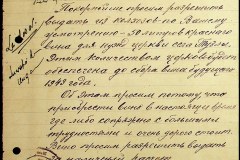 Покорнейше просим разрешить
выдать из колхоза по Вашему
усмотрению - 50 литров красного
вина для нужд церкви села
Этим количеством церковь будет
обеспечена до сбора вина будущего
1949 года.
Об этом просим потому, что
приобрести вино в настоящее время
где либо сопряжено с большими
трудностями и очень дорого стоит.
Вино просим разрешить выдать
за наличный расчет